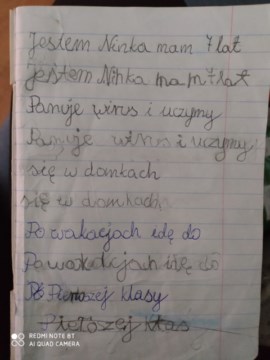 Jestem Ninka mam 7 lat
Jestem Ninka mam 7 lat
Panuje wirus i uczymy
Panuje wirus i uczymy
się w domkach
się w domkach
Po wakacjach idę do
Po wakacjach idę do
Pierszej klasy
Pierszej klas
REDMI NOTE 8T
AI QUAD CAMERA